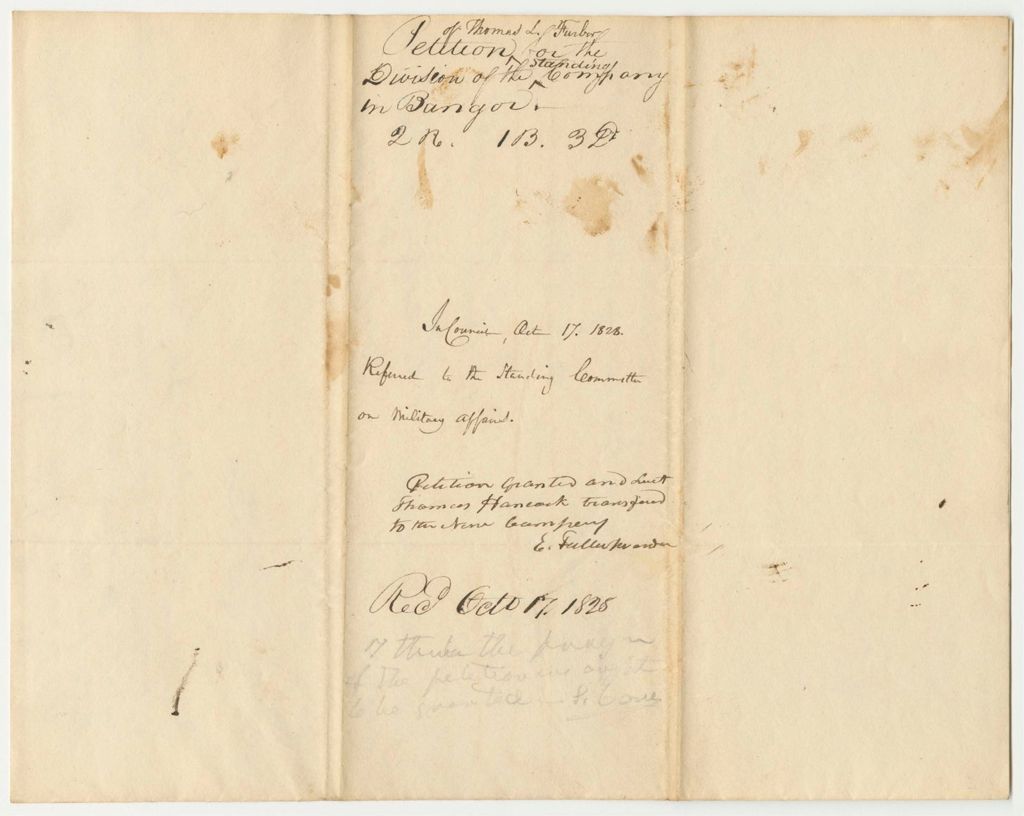 of Thomas L. Furber
Petition, for the
Standing
Division of the ^ Company
in Bangor.
2 R. 1 B. 3 D.
In Council, Oct 17. 1828.
Referred to the Standing Committee
on Military affairs.
Petition Granted and Lieut
Thomas Hancock transferred
to the New Company
E. Fuller
Recd Oct 17. 1828
I think the prayer
of the petitioners ought
to be granted - S. Cove